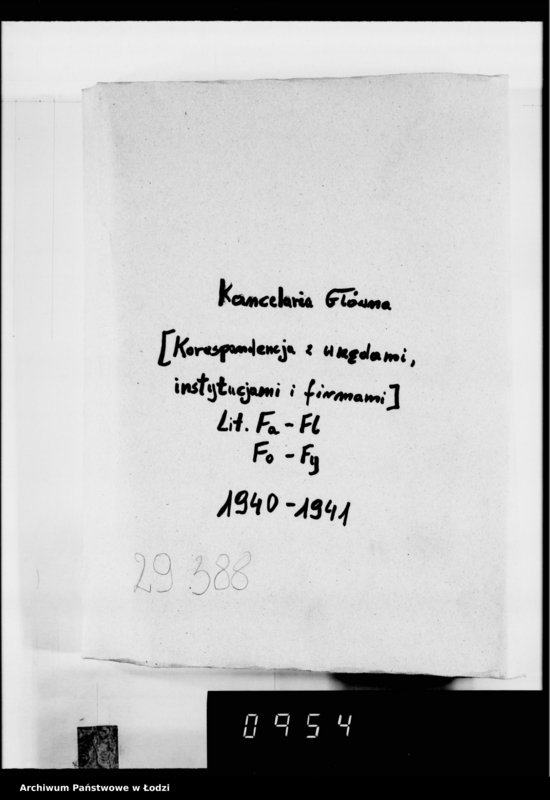 Kancelaria Główna
[Korespondencja z urzędami,
instytucjami i firmami]
Lit. Fa - Fl
Fo - Fy
1940 - 1941
29 388
0954
Archiwum Państwowe w Łodzi